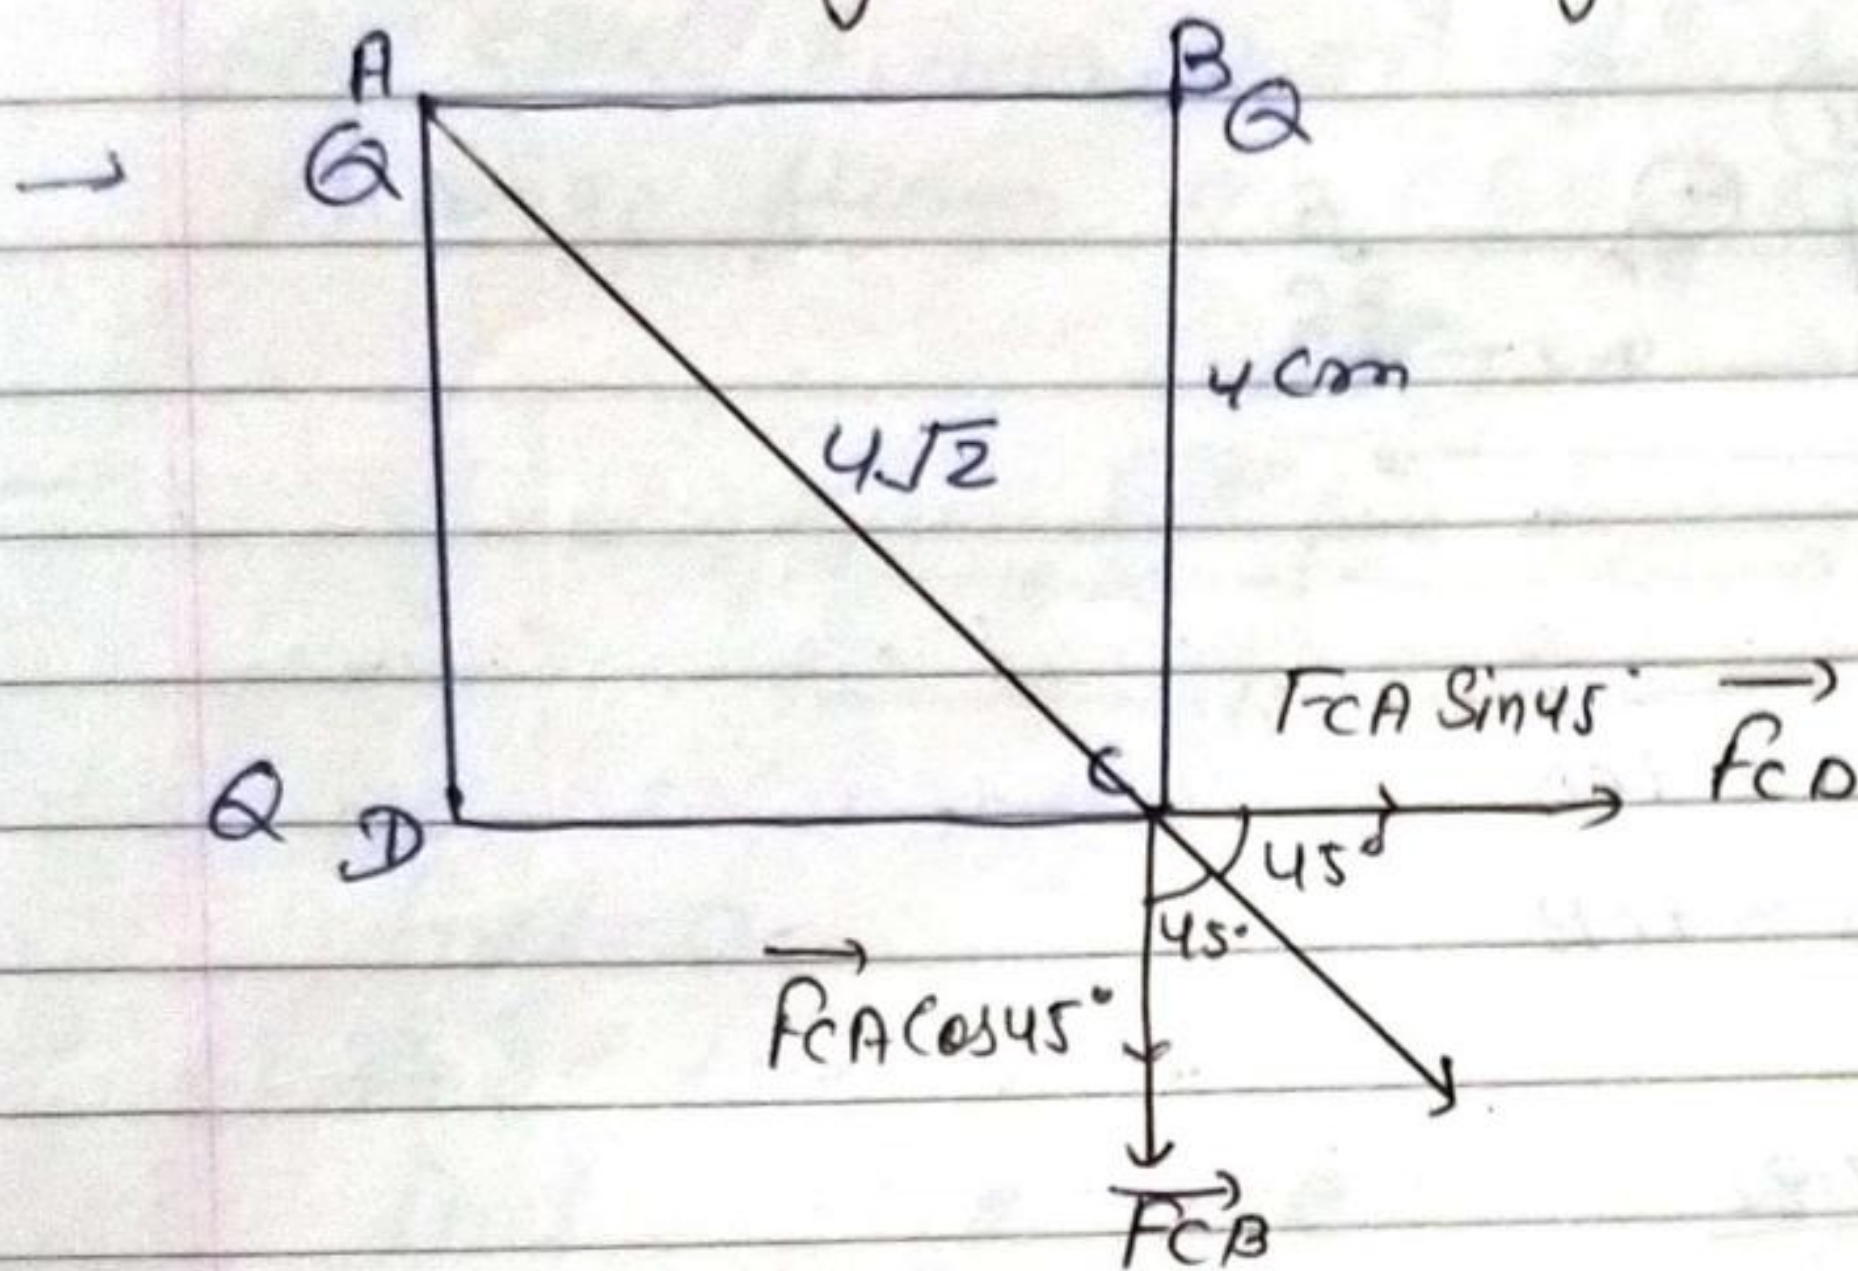 A
B
Q
Q
4 cm
4√2
FCA Sin45°
FCD
C
Q
D
45°
45°
FCA Cos45°
FCB